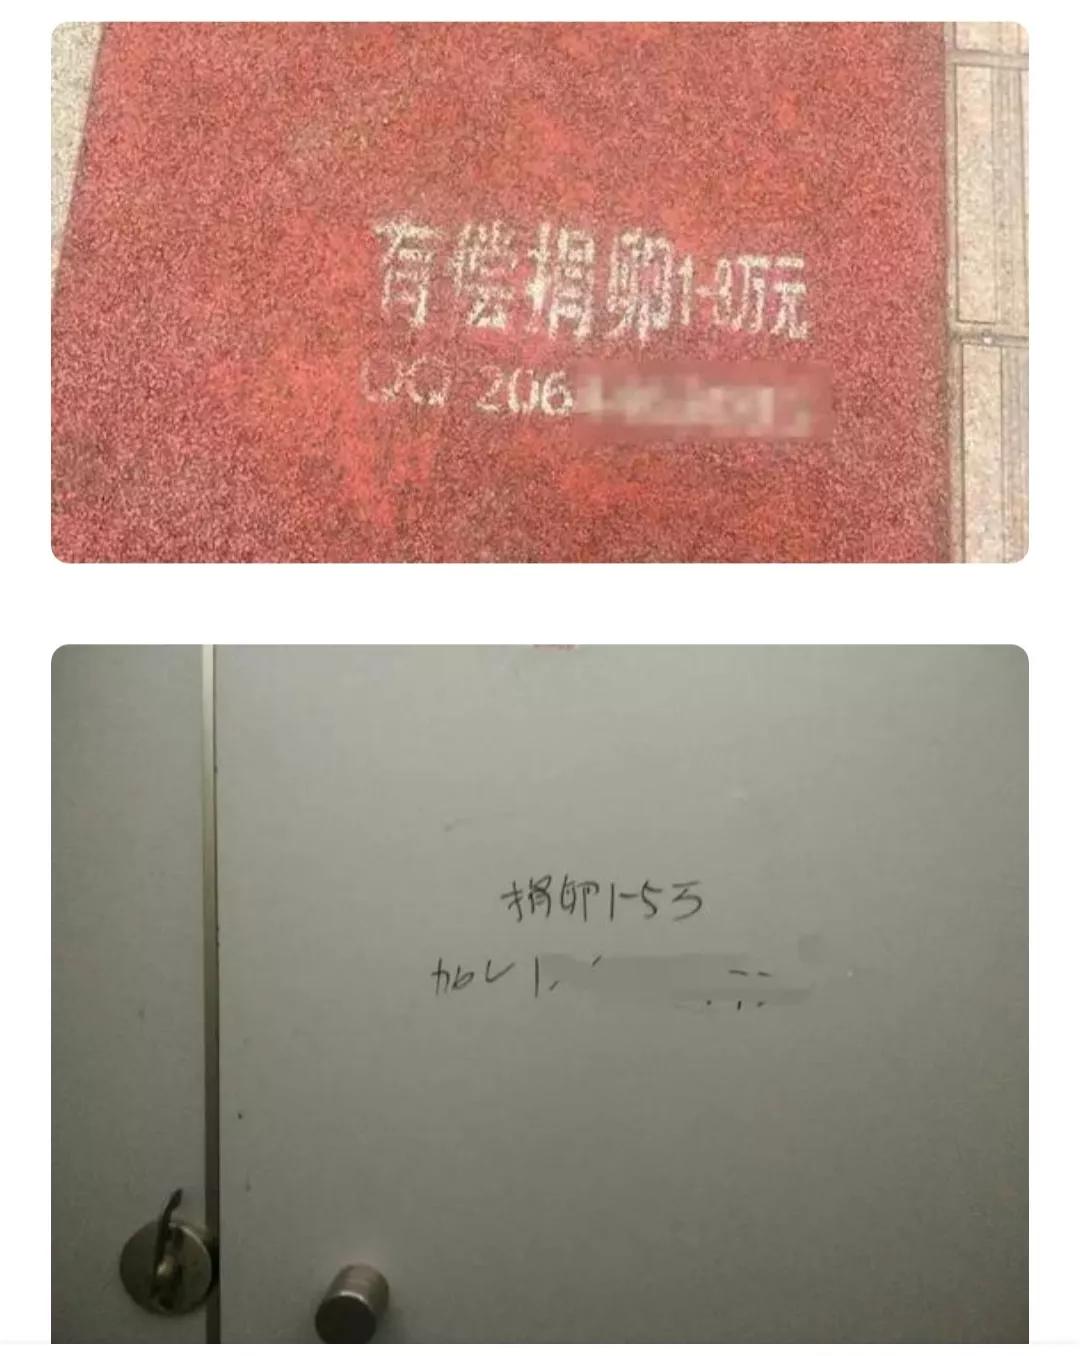 有偿捐卵1-8万元
QQ 206
捐卵1-5万
加V 1